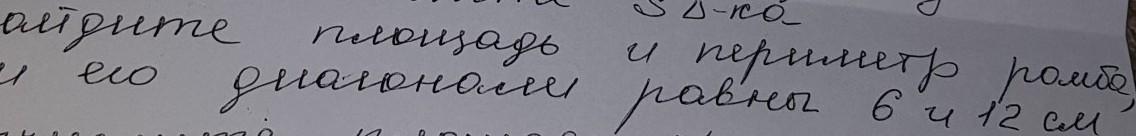 S Δ-ка
айдите площадь и периметр ромба,
и его диагонали равны 6 и 12 см